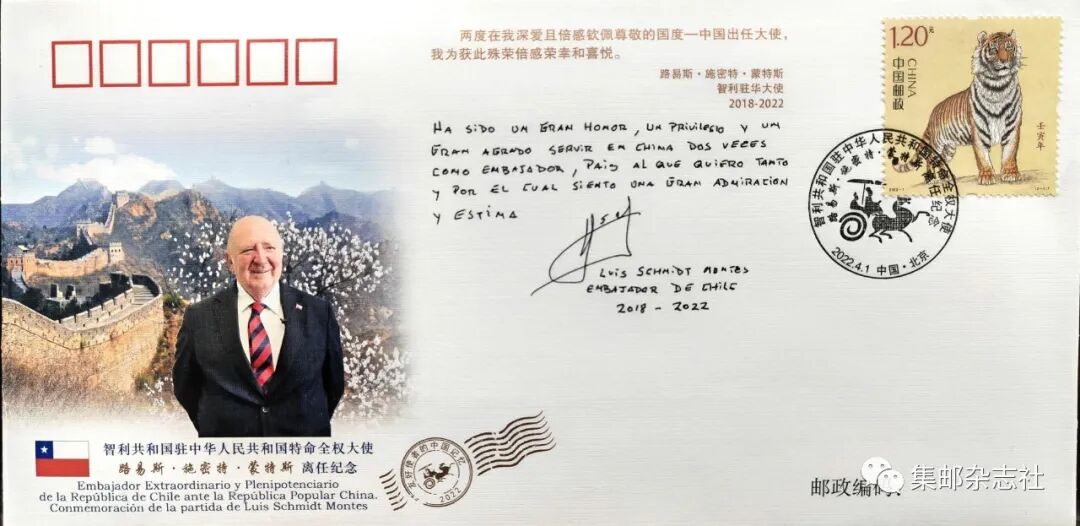 两度在我深爱且倍感钦佩尊敬的国度—中国出任大使，
我为获此殊荣倍感荣幸和喜悦。
路易斯·施密特·蒙特斯
智利驻华大使
2018-2022
HA SIDO UN GRAN HONOR, UN PRIVILEGIO Y UN
GRAN AGRADO SERVIR EN CHINA DOS VECES
COMO EMBAJADOR, PAIS AL QUE QUIERO TANTO
Y POR EL CUAL SIENTO UNA GRAN ADMIRACION
Y ESTIMA
LUIS SCHMIDT MONTES
EMBAJADOR DE CHILE
2018 - 2022
1.20元
CHINA
中国邮政
壬寅年
智利共和国驻中华人民共和国特命全权大使
路易斯·施密特·蒙特斯 离任纪念
2022.4.1 中国·北京
智利共和国驻中华人民共和国特命全权大使
路易斯·施密特·蒙特斯 离任纪念
Embajador Extraordinario y Plenipotenciario
de la República de Chile ante la República Popular China.
Conmemoración de la partida de Luis Schmidt Montes
友好使者的中国记忆
2022
邮政编码
集邮杂志社